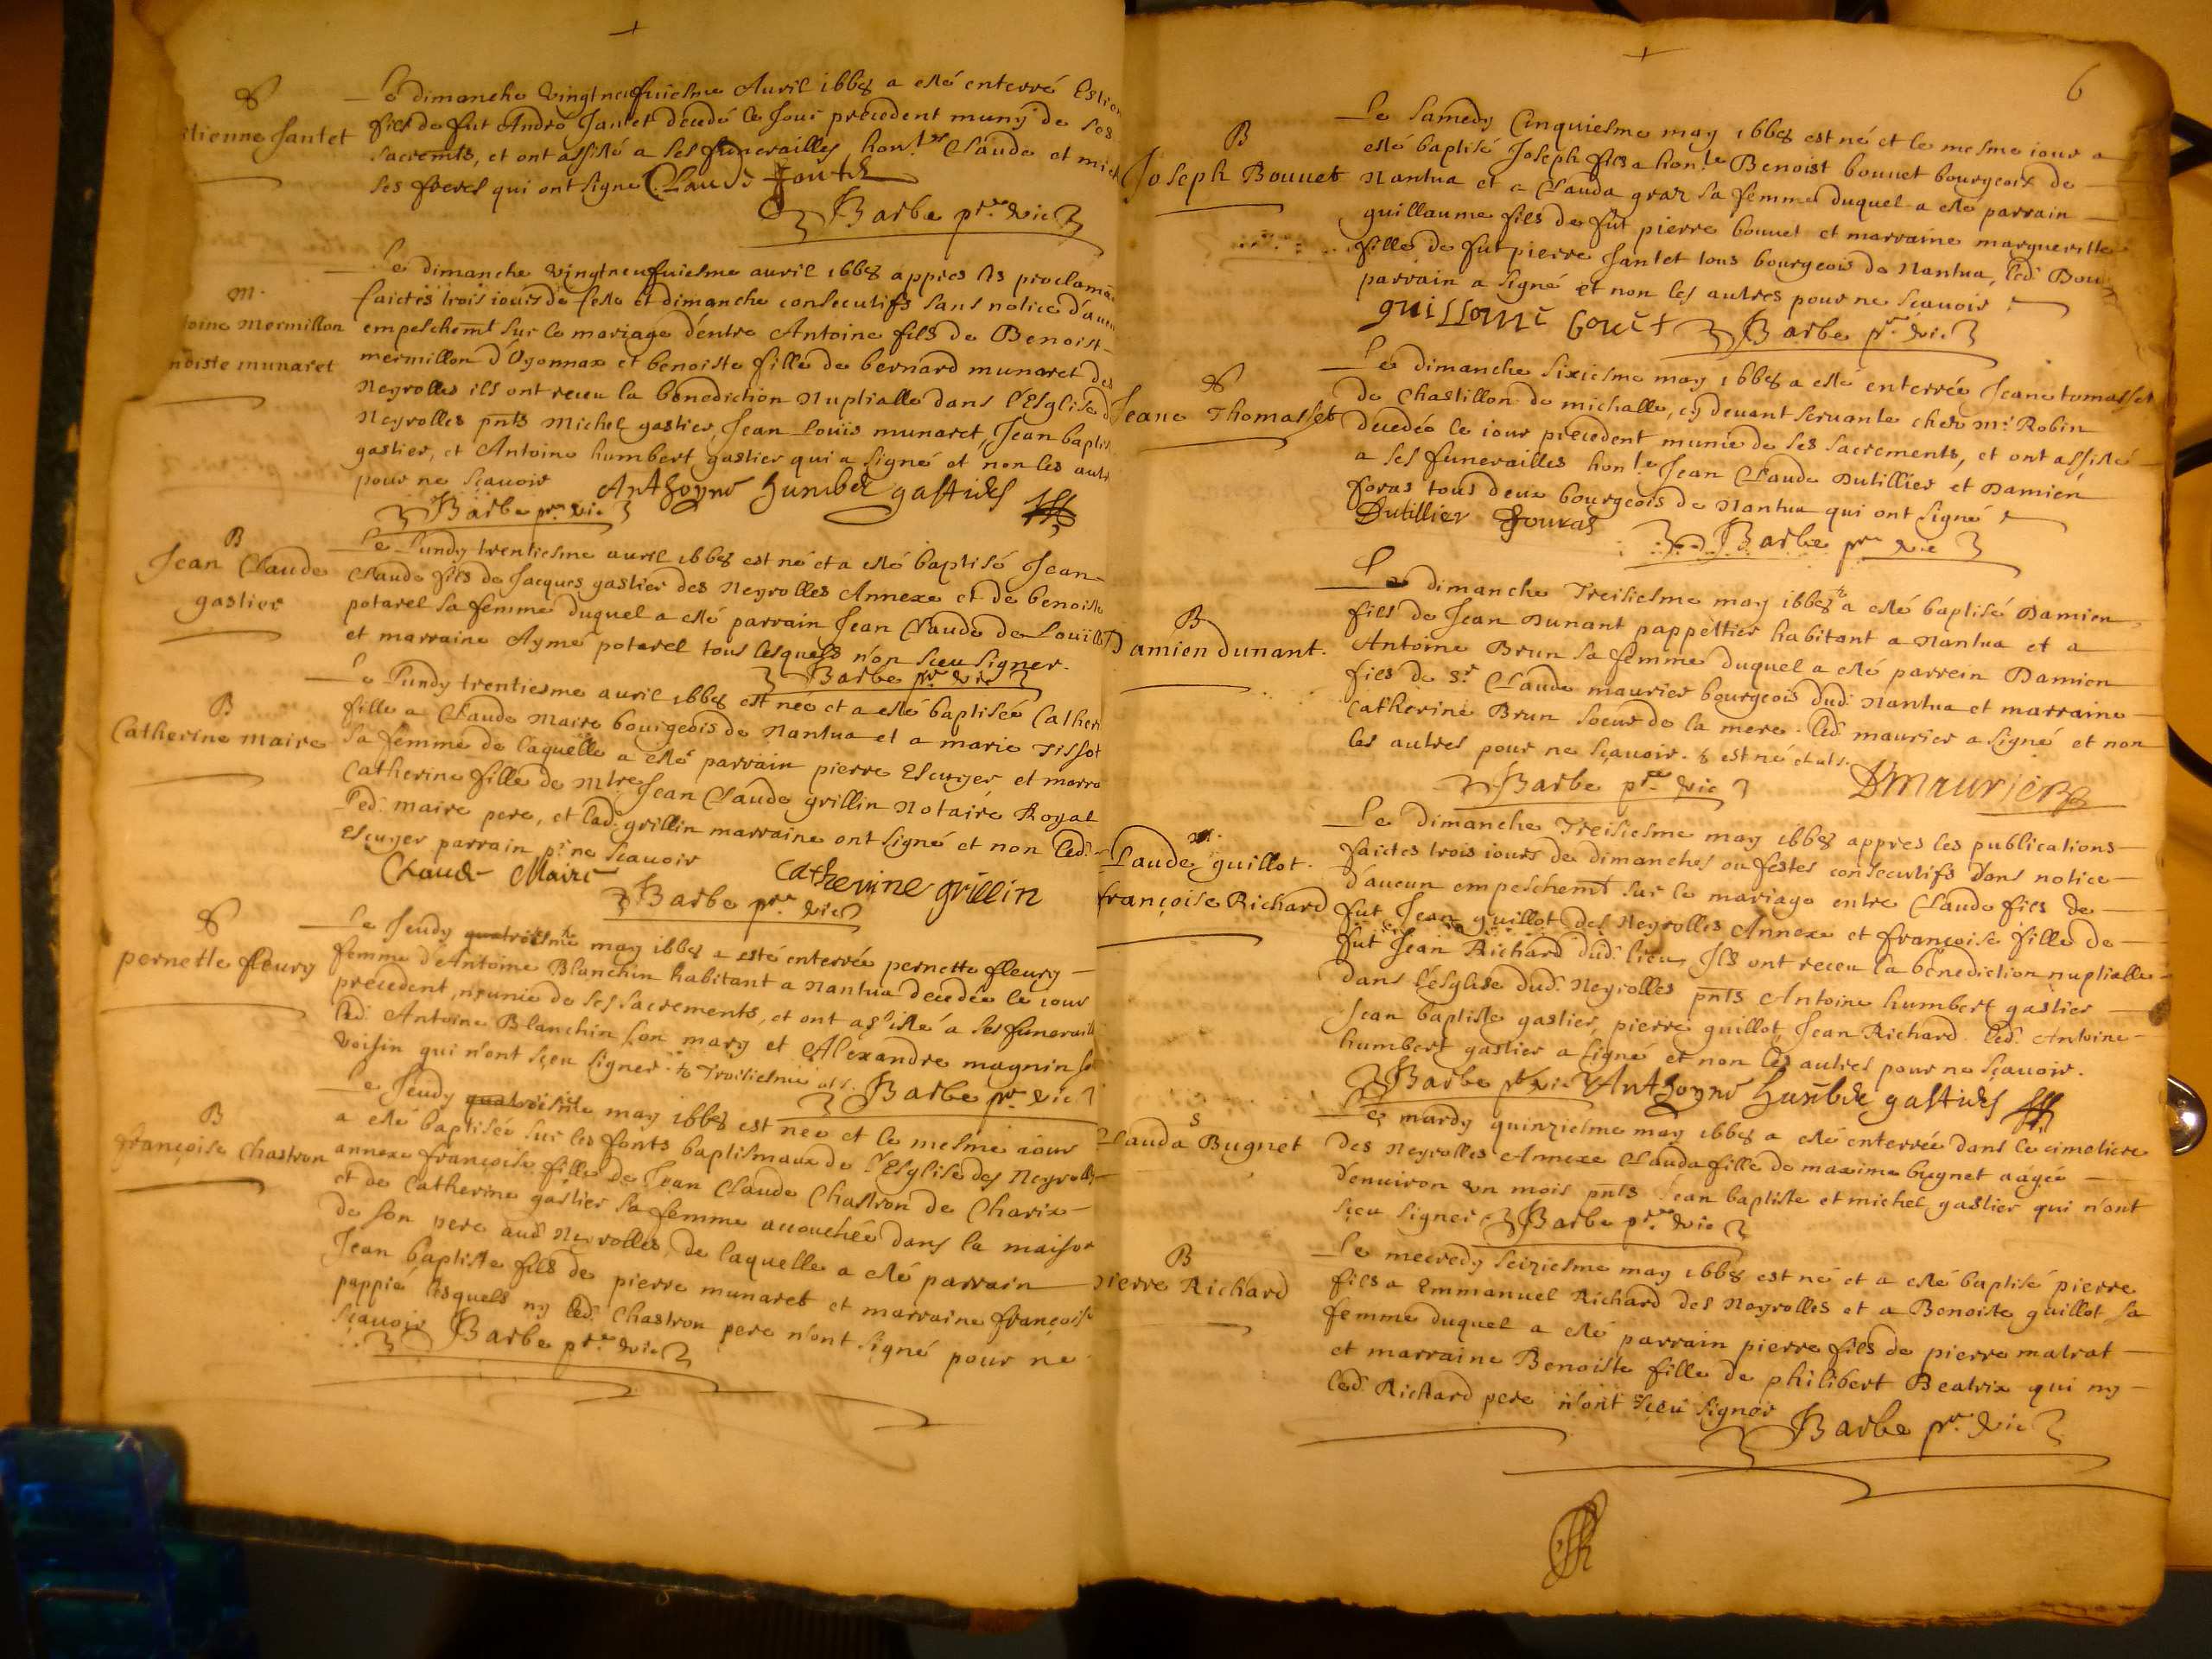 S
tienne Jantet
Le dimanche vingtneufuiesme Auril 1668 a esté enterré Estien
fils de fut André Jantet décédé le Jour precedent muny de ses
sacremts, et ont assisté a ses funerailles hon.bles Claude et mich
ses freres qui ont signe Claude Jantet
Barbe ptre vic
m.
toine mermillon
noiste munaret
Le dimanche vingtneufuiesme auril 1668 appres les proclama
faictes trois iours de feste et dimanche consecutifs sans notice d'aucun
empeschemt sur le mariage d'entre Antoine fils de Benoist
mermillon d'Oyonnax et benoiste fille de bernard munaret des
Neyrolles ils ont receu la benediction Nuptialle dans l'Esglise d
Neyrolles pnts Michel gastier, Jean Louis munaret, Jean baptis
gastier, et Antoine humbert gastier qui a signé et non les autr
pour ne sçauoir Anthoyne humber gastier
Barbe ptre vic
B
Jean Claude
gastier
Le Lundy trentiesme auril 1668 est né et a esté baptisé Jean
Claude fils de Jacques gastier des Neyrolles Annexe et de benoiste
potarel sa femme duquel a esté parrain Jean Claude de Louill
et marraine Aymé potarel tous lesquels n'on sceu signer.
Barbe ptre vic
B
Catherine maire
Le Lundy trentiesme auril 1668 est née et a esté baptisée Cather
fille a Claude Maire bourgeois de Nantua et a marie Tissot
sa femme de laquelle a esté parrain pierre Escuyer et marra
Catherine fille de Mtre Jean Claude grillin Notaire Royal
Led. maire pere, et lad. grillin marraine ont signé et non led.
Escuyer parrain pr ne sçauoir
Claude Maire Catherine grillin
Barbe ptre vic
S
pernette fleury
Le Jeudy quatriesme may 1668 a esté enterrée pernette fleury
femme d'Antoine Blanchin habitant a Nantua decedée le iour
precedent, munie de ses sacrements, et ont assisté a ses funeraill
led. Antoine Blanchin son mary et Alexandre magnin so
voisin qui n'ont sçeu signer. Troisiesme Barbe ptre vic
B
françoise Chastron
Le Jeudy quatriesme may 1668 est nee et le mesme iour
a esté baptisée sur les fonts baptismaux de l'Esglise des Neyrolles
annexe françoise fille de Jean Claude Chastron de Charix
et de Catherine gastier sa femme acouchée dans la maison
de son pere aud. Neyrolles, de laquelle a esté parrain
Jean baptiste fils de pierre munaret et marraine françoise
pappié lesquels ny led. Chastron pere n'ont signé pour ne
sçauoir Barbe ptre vic
6
B
Joseph Bouuet
Le Samedy Cinquiesme may 1668 est né et le mesme iour a
esté baptisé Joseph fils a hon.le Benoist bouuet bourgeoix de
Nantua et a Clauda graz sa femme duquel a esté parrain
guillaume fils de fut pierre bouuet et marraine margueritte
fille de fut pierre Jantet tous bourgeois de Nantua, led. Bouu
parrain a signé et non les autres pour ne sçauoir
Barbe ptre vic
S
Jeane Thomasset
Le dimanche sixiesme may 1668 a esté enterrée Jeane tomasset
de Chastillon de michalle, cy deuant seruante chez mr Robin
decedée le iour precedent munie de ses sacrements, et ont assisté
a ses funerailles hon.le Jean Claude Dutillier et Damien
foras tous deux bourgeois de Nantua qui ont signé
Dutillier fouras
Barbe ptre vic
B
Damien dunant.
Le dimanche Treisiesme may 1668 a esté baptisé Damien
fils de Jean Dunant pappettier habitant a Nantua et a
Antoine Brun sa femme duquel a esté parrein Damien
fils de Sr Claude maurier bourgeois dud. Nantua et marraine
Catherine Brun soeur de la mere. led. maurier a signé et non
les autres pour ne sçauoir. est né
Barbe ptre vic Dmaurier
m.
Claude guillot.
françoise Richard
Le dimanche Treisiesme may 1668 appres les publications
faictes trois iours de dimanches ou festes consecutifs dans notice
d'aucun empeschemt sur le mariage entre Claude fils de
fut Jean guillot des Neyrolles Annexe et françoise fille de
fut Jean Richard dud. lieu, Ils ont receu la benediction nuptialle
dans l'Esglise dud. Neyrolles pnts Antoine humbert gastier
Jean baptiste gastier, pierre guillot, Jean Richard. led. Antoine
humbert gastier a signé et non les autres pour ne sçauoir.
Barbe ptre vic Anthoyne humber gastier
S
Clauda Bugnet
Le mardy quinziesme may 1668 a esté enterrée dans le cimetiere
des Neyrolles Annexe Clauda fille de maxime bugnet aagée
d'enuiron un mois pnts Jean baptiste et michel gastier qui n'ont
sçeu signer Barbe ptre vic
B
pierre Richard
Le mecredy seiziesme may 1668 est né et a esté baptisé pierre
fils a Emmanuel Richard des Neyrolles et a Benoiste guillot sa
femme duquel a esté parrain pierre fils de pierre matrat
et marraine Benoiste fille de philibert Beatrix qui ny
led. Richard pere n'ont sçeu signer
Barbe ptre vic